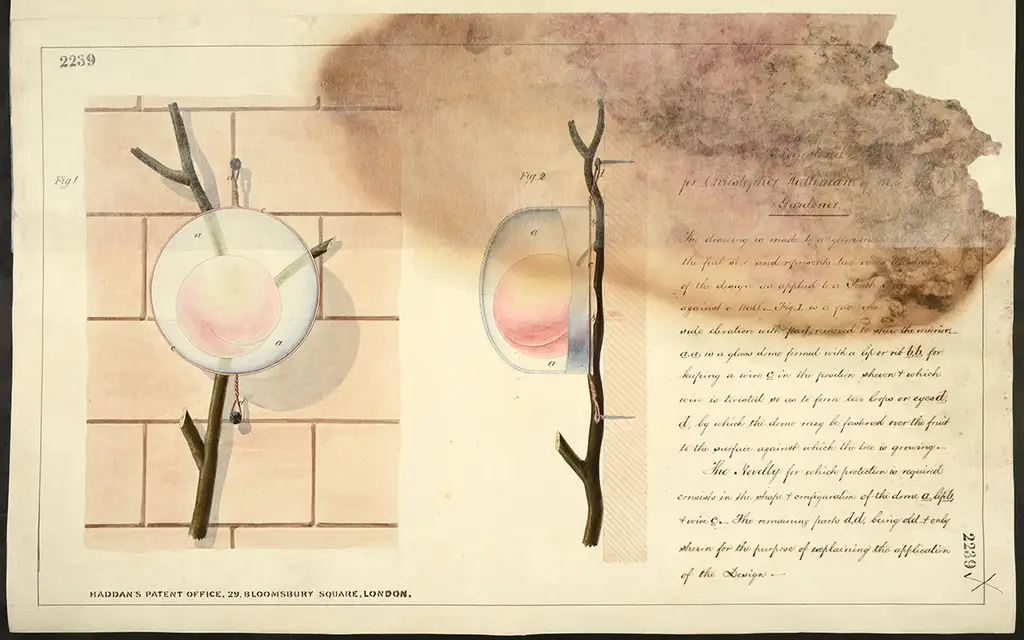 2239
Fig 1
d
c
a
a
c
Fig 2
a
a
for Christopher
Gardener.
The drawing is made to a geometrical
the full size and represents two views
of the design as applied to a
against a Wall. Fig. 1. is a
side elevation with part removed to shew the interior.
a.a. is a glass dome formed with a lip or rib b.b. for
keeping a wire c in the position shewn & which
wire is twisted so as to form two loops or eyes d,
d, by which the dome may be fastened over the fruit
to the surface against which the tree is growing.—
The Novelty for which protection is required
consists in the shape & configuration of the dome a, lip b,
& wire c.— The remaining parts d,d, being old & only
shewn for the purpose of explaining the application
of the Design —
2239
HADDAN'S PATENT OFFICE, 29, BLOOMSBURY SQUARE, LONDON.